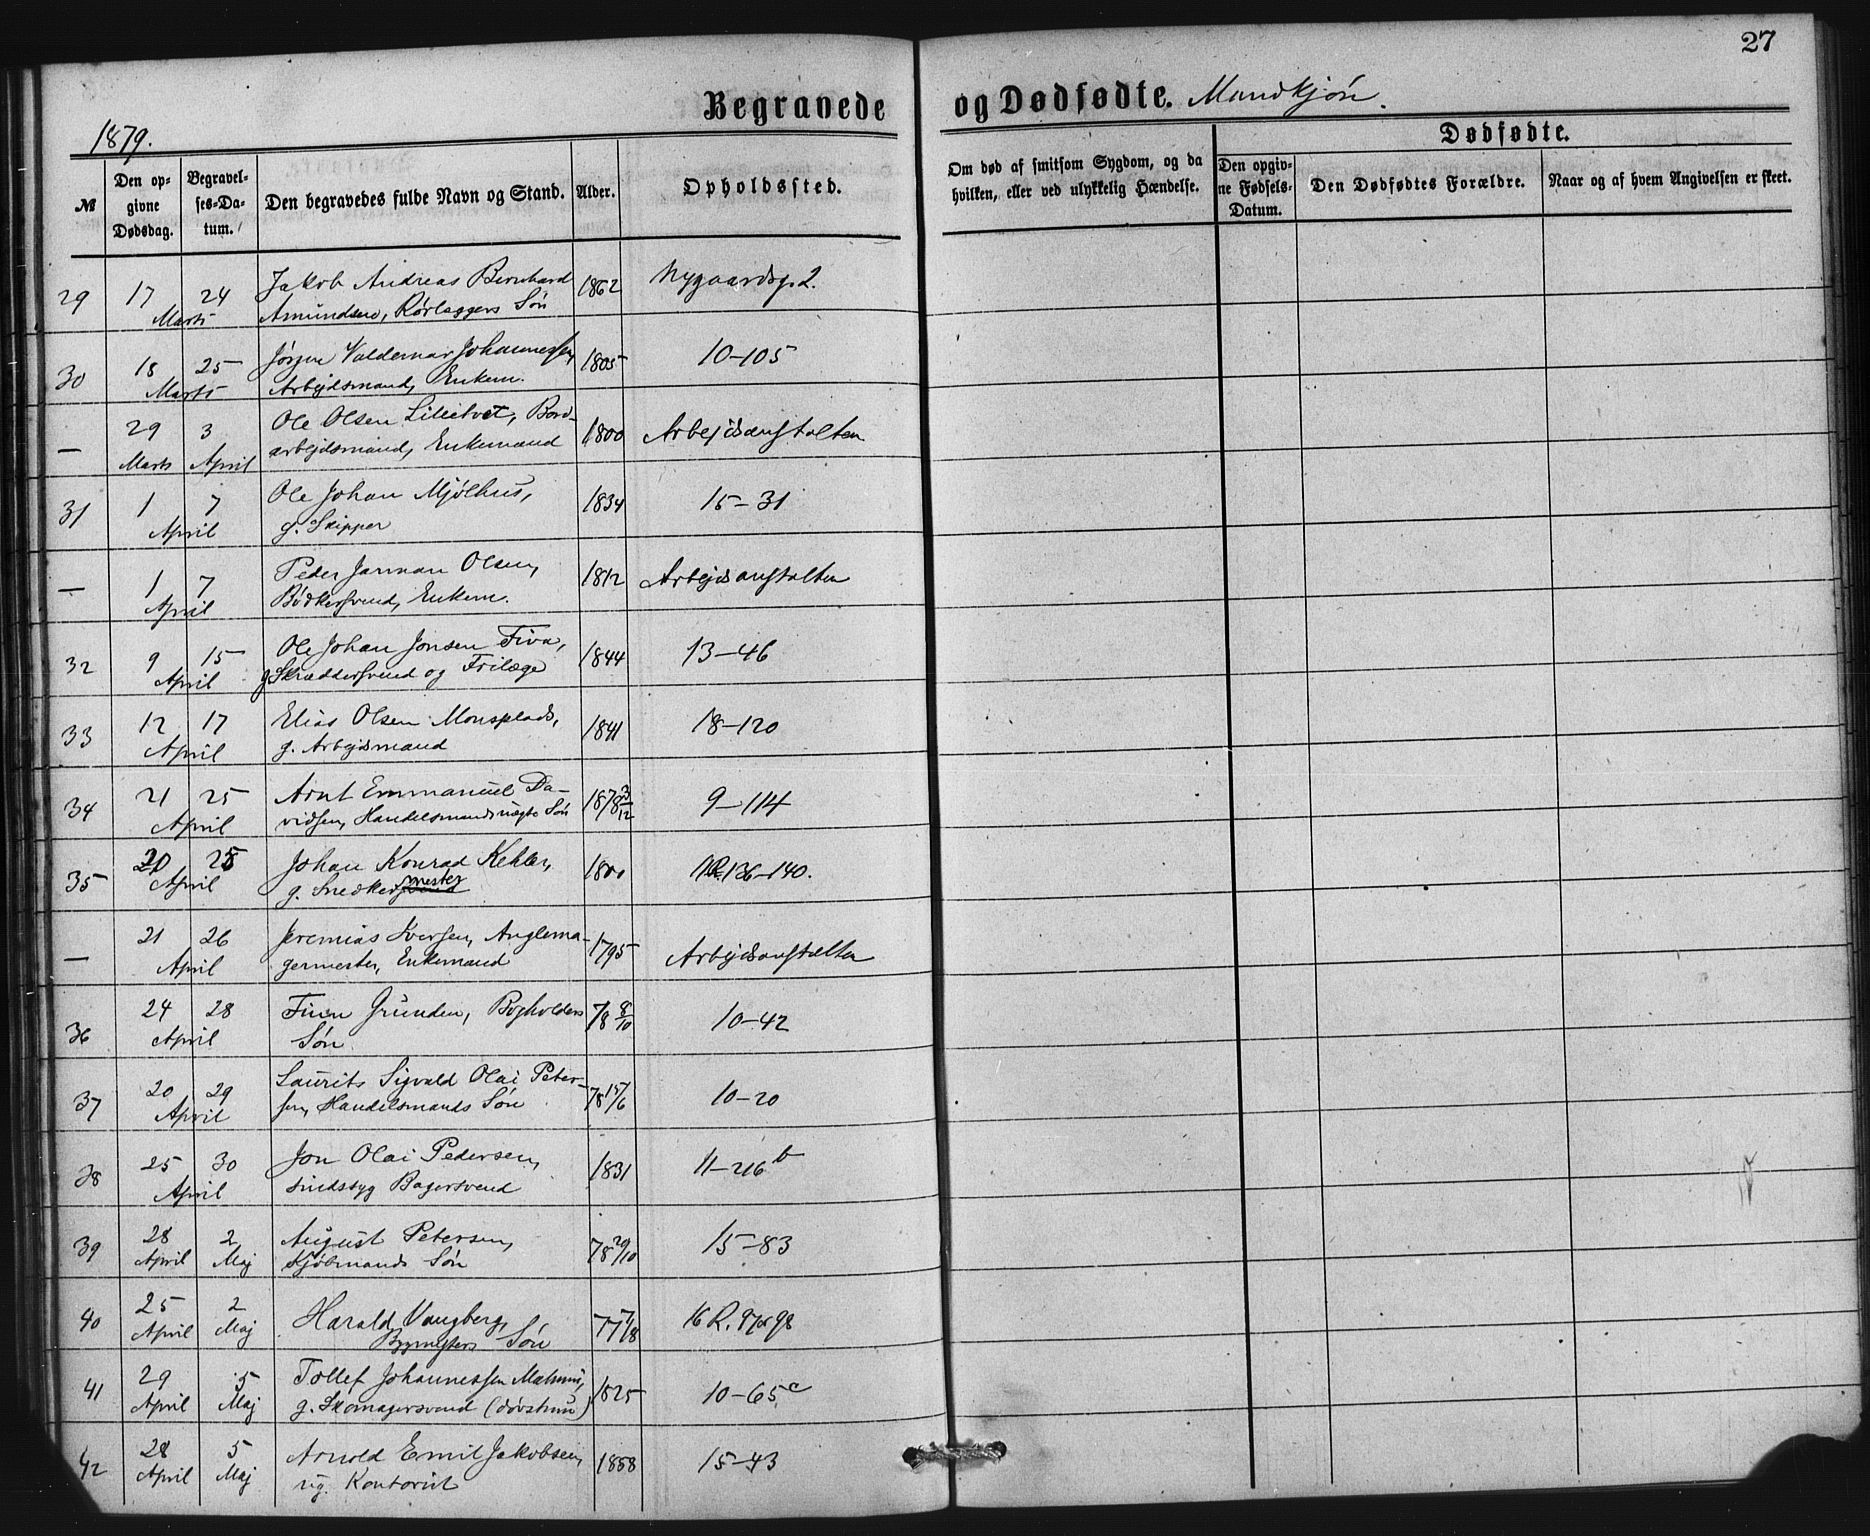 27
Begravede og Dødfødte. Mandkjøn.
1879.
Dødfødte.
№
Den opgivne Dødsdag.
Begravelses-Datum.
Den begravedes fulde Navn og Stand.
Alder.
Opholdssted.
Om død af smitsom Sygdom, og da hvilken, eller ved ulykkelig Hændelse.
Den opgivne Fødsels-Datum.
Den Dødfødtes Forældre.
Naar og af hvem Angivelsen er skeet.
29 17 24 Jakob Andreas Bernhard 1862 Nygaardsg. 2.
Marts Amundsen, Rørlæggers Søn
30 18 25 Jørgen Valdemar Johannessen, 1805 10-105
Marts Arbejdsmand, Enkem.
— 29 3 Ole Olsen Lilletvet, Bord- 1800 Arbejdsanstalten
Marts April arbejdsmand, Enkemand
31 1 7 Ole Johan Mjølhus, 1834 15-31
April g. Skipper
— 1 7 Peder Jarman Olsen, 1812 Arbejdsanstalten
April Bødkersvend, Enkem.
32 9 15 Ole Johan Jonsen Tiva, 1844 13-46
April g. Skræddersvend og Frilæge
33 12 17 Elias Olsen Monsplads, 1841 18-120
April g. Arbejdsmand
34 21 25 Arnt Emmanuel Da- 1878 3/12 9-114
April vidsen, Handelsmands uægte Søn
35 20 25 Johan Konrad Kehler, 1800 136-140.
April g. Snedkermester
— 21 26 Jeremias Iversen, Anglema- 1795 Arbejdsanstalten
April germester, Enkemand
36 24 28 Finn Grunden, Bogholders 78 8/10 10-42
April Søn
37 20 29 Laurits Sigvald Olai Peter- 78 15/6 10-20
April sen, Handelsmands Søn
38 25 30 Jon Olai Pedersen, 1831 11-216 b
April sindssyg Bagersvend
39 28 2 August Petersen, 78 29/10 15-83
April Maj Kjøbmands Søn
40 25 2 Harald Vangberg, 77 7/8 16 R. 97 & 98
April Maj Bygmesters Søn
41 29 5 Tollef Johannessen Malmin, 1825 10-65 c
April Maj g. Skomagersvend (døvstum)
42 28 5 Arnold Emil Jakobsen, 1858 15-43
April Maj ug. Kontorist